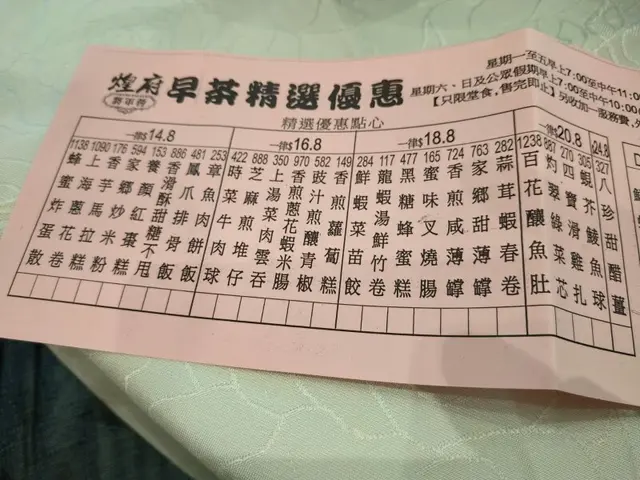 煌府
早茶精選優惠
星期一至五早上7:00至中午11:0
星期六、日及公眾假期早上7:00至中午10:0
【只限堂食,售完即止】另收加一服務費,
精選優惠點心
一律$14.8
1138 蜂蜜炸蛋散
1090 上海蔥花卷
176 香芋馬拉糕
594 家鄉炒米粉
153 養顏紅棗糕
886 香滑酥甜糖不甩
481 鳳爪排骨飯
253 章魚肉餅飯
一律$16.8
422 時菜牛肉球
888 芝麻煎堆仔
350 上湯菜肉雲吞
970 香煎蔥花蝦米腸
582 豉汁煎釀青椒
149 香煎蘿蔔糕
一律$18.8
284 鮮蝦菜苗餃
117 龍蝦湯鮮竹卷
477 黑糖蜂蜜糕
165 蜜味叉燒腸
724 香煎咸薄罉
763 家鄉甜薄罉
282 蒜茸蝦春卷
一律$20.8
1238 百花釀魚肚
887 灼翠綠菜芯
270 四寶滑雞扎
305 蜆芥鯪魚球
24.8
327 八珍甜醋薑